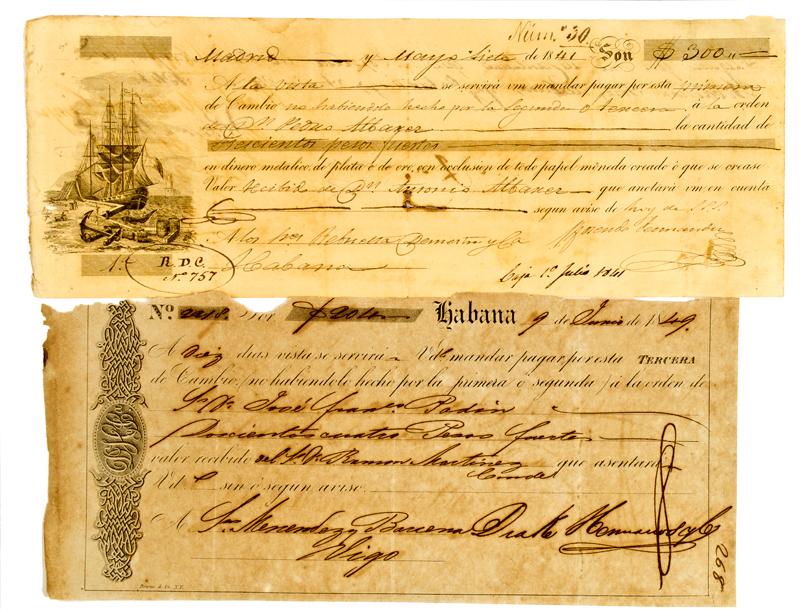 Núm.º 30
Madrid y Mayo Siete de 1841 Son $ 300
A la vista se servirá vm mandar pagar por esta primera
de Cambio no habiendolo hecho por la Segunda o tercera á la orden
de Dn. Pedro Albaxer la cantidad de
trescientos pesos fuertes
en dinero metalico de plata ó de oro con exclusion de todo papel moneda creado ó que se crease
Valor recibido de Dn. Antonio Albaxer que anotará vm en cuenta
segun aviso de hoy de
A los Sres y Ca
1.ª R.D.C. Habana
Nº 757
Caja 1º Julio 1841
Nº 2218. Por $ 204 Habana 9 de Junio de 1849.
A diez dias vista se servirá Vd. mandar pagar por esta TERCERA
de Cambio, (no habiendolo hecho por la primera ó segunda) á la orden de
Sr. Dn. José Franco. Padin
Doscientos cuatro Pesos fuertes
valor recibido del Sr. Dn. Ramon Martinez que asentará
Conde
Vd. sin ó segun aviso.
A Sres. Menendez y Barcena Drake Hermanos y Ca
Vigo
268